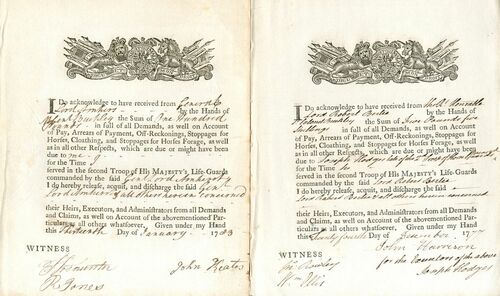 I Do acknowledge to have received from General
Lord Amherst by the Hands of
the Sum of One Hundred
in full of all Demands, as well on Account
of Pay, Arrears of Payment, Off-Reckonings, Stoppages for
Horses, Cloathing, and Stoppages for Horses Forage, as well
as in all other Respects, which are due or might have been
due to me
for the Time I
served in the second Troop of His MAJESTY's Life-Guards
commanded by the said Genl. Lord Amherst
I do hereby release, acquit, and discharge the said Genl.
Lord Amherst & all others herein concerned
their Heirs, Executors, and Administrators from all Demands
and Claims, as well on Account of the abovementioned Par-
ticulars as all others whatsoever, Given under my Hand
this Thirteenth Day of January 1783
WITNESS
John Keates
R Jones
I Do acknowledge to have received from
Lord Robert Bertie by the Hands of
the Sum of Nine Pounds five
Shillings in full of all Demands, as well on Account
of Pay, Arrears of Payment, Off-Reckonings, Stoppages for
Horses, Cloathing, and Stoppages for Horses Forage, as well
as in all other Respects, which are due or might have been
due to Joseph Hodges
for the Time he
served in the second Troop of His MAJESTY's Life-Guards
commanded by the said Lord Robert Bertie
I do hereby release, acquit, and discharge the said
Lord Robert Bertie & all others herein concerned
their Heirs, Executors, and Administrators from all Demands
and Claims, as well on Account of the abovementioned Par-
ticulars as all others whatsoever, Given under my Hand
this Twenty fourth Day of December 1777
John Harrison
WITNESS
for the Executors of the above
Joseph Hodges
Wm Ellis